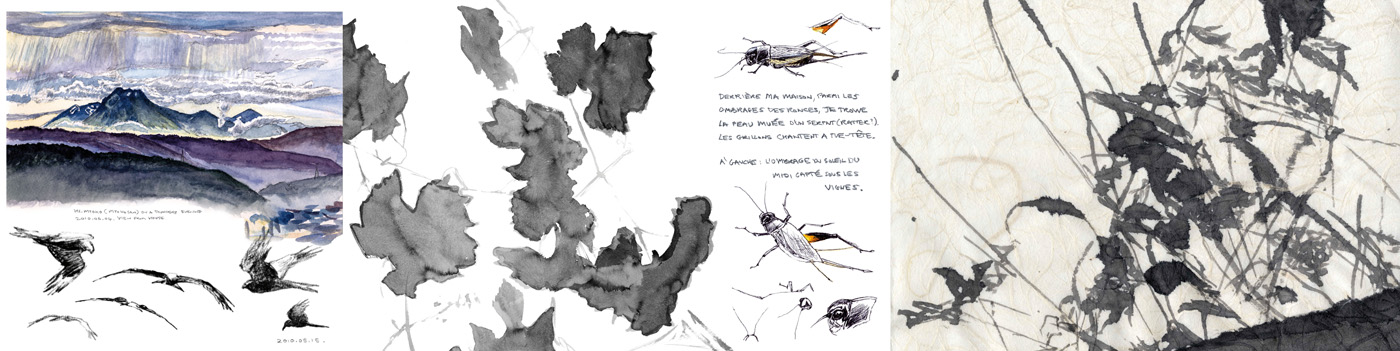 2010.05.15.
DERRIÈRE MA MAISON, PARMI LES
OMBRAGES DES RONCES, JE TROUVE
LA PEAU MUÉE D'UN SERPENT (RATTER?).
LES GRILLONS CHANTENT A TUE-TÊTE.
A' GAUCHE: L'OMBRAGE DU SOLEIL DU
MIDI CAPTÉ SOUS LES
VIGNES.